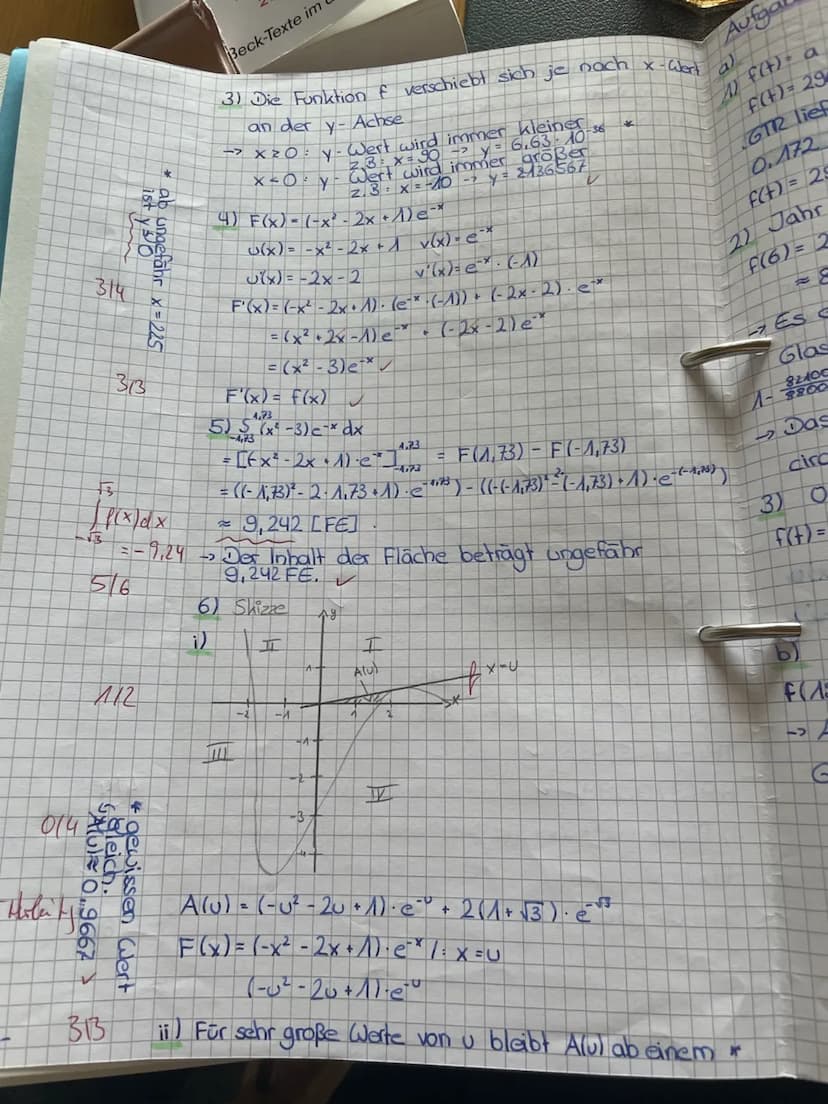 Beck-Texte im
3) Die Funktion f verschiebt sich je nach x-Wert
an der y-Achse
→ x ≥ 0 : y-Wert wird immer kleiner
z.B: x = 90 → y = 6,63 · 10⁻³⁶ *
x < 0 : y-Wert wird immer größer
z.B: x = -10 → y = 2136567
* ab ungefähr x = 225
ist y ≈ 0
3/4
4) F(x) = (-x² - 2x + 1) e⁻ˣ
u(x) = -x² - 2x + 1 v(x) = e⁻ˣ
u'(x) = -2x - 2 v'(x) = e⁻ˣ · (-1)
F'(x) = (-x² - 2x + 1) · (e⁻ˣ · (-1)) + (-2x - 2) · e⁻ˣ
= (x² + 2x - 1) e⁻ˣ + (-2x - 2) e⁻ˣ
= (x² - 3) e⁻ˣ ✓
3/3
F'(x) = f(x) ✓
5) ∫₋₁,₇₃^1,73 (x² - 3) e⁻ˣ dx
= [(-x² - 2x + 1) · e⁻ˣ]₋₁,₇₃^1,73 = F(1,73) - F(-1,73)
= ((-1,73)² - 2 · 1,73 + 1) · e^-1,73) - ((-(-1,73)² - 2 · (-1,73) + 1) · e^-(-1,73))
≈ 9,242 [FE].
∫₋√3^√3 f(x) dx
= -9,24
→ Der Inhalt der Fläche beträgt ungefähr
9,242 FE. ✓
5/6
6) Skizze
i)
y
II I
1
A(u)
x=u
f
x
-2 -1 1 2
1/2
III
-1
-2
IV
-3
-4
0/4
A(u) = (-u² - 2u + 1) · e⁻ᵘ + 2(1 + √3) · e^-√3
F(x) = (-x² - 2x + 1) · e⁻ˣ | : x = u
(-u² - 2u + 1) · e⁻ᵘ
* gewissen Wert
gleich:
A(u) ≈ 0,9667 ✓
3/3
ii) Für sehr große Werte von u bleibt A(u) ab einem *
a)
1) f(t) = a
f(t) = 29
GTR lief
0.172
f(t) = 29
2) Jahr
f(6) = 2
≈ 8
→ Es
Glas
1 - 82100
8800
→ Das
circ
3)
f(t) =
b)
f(1
→